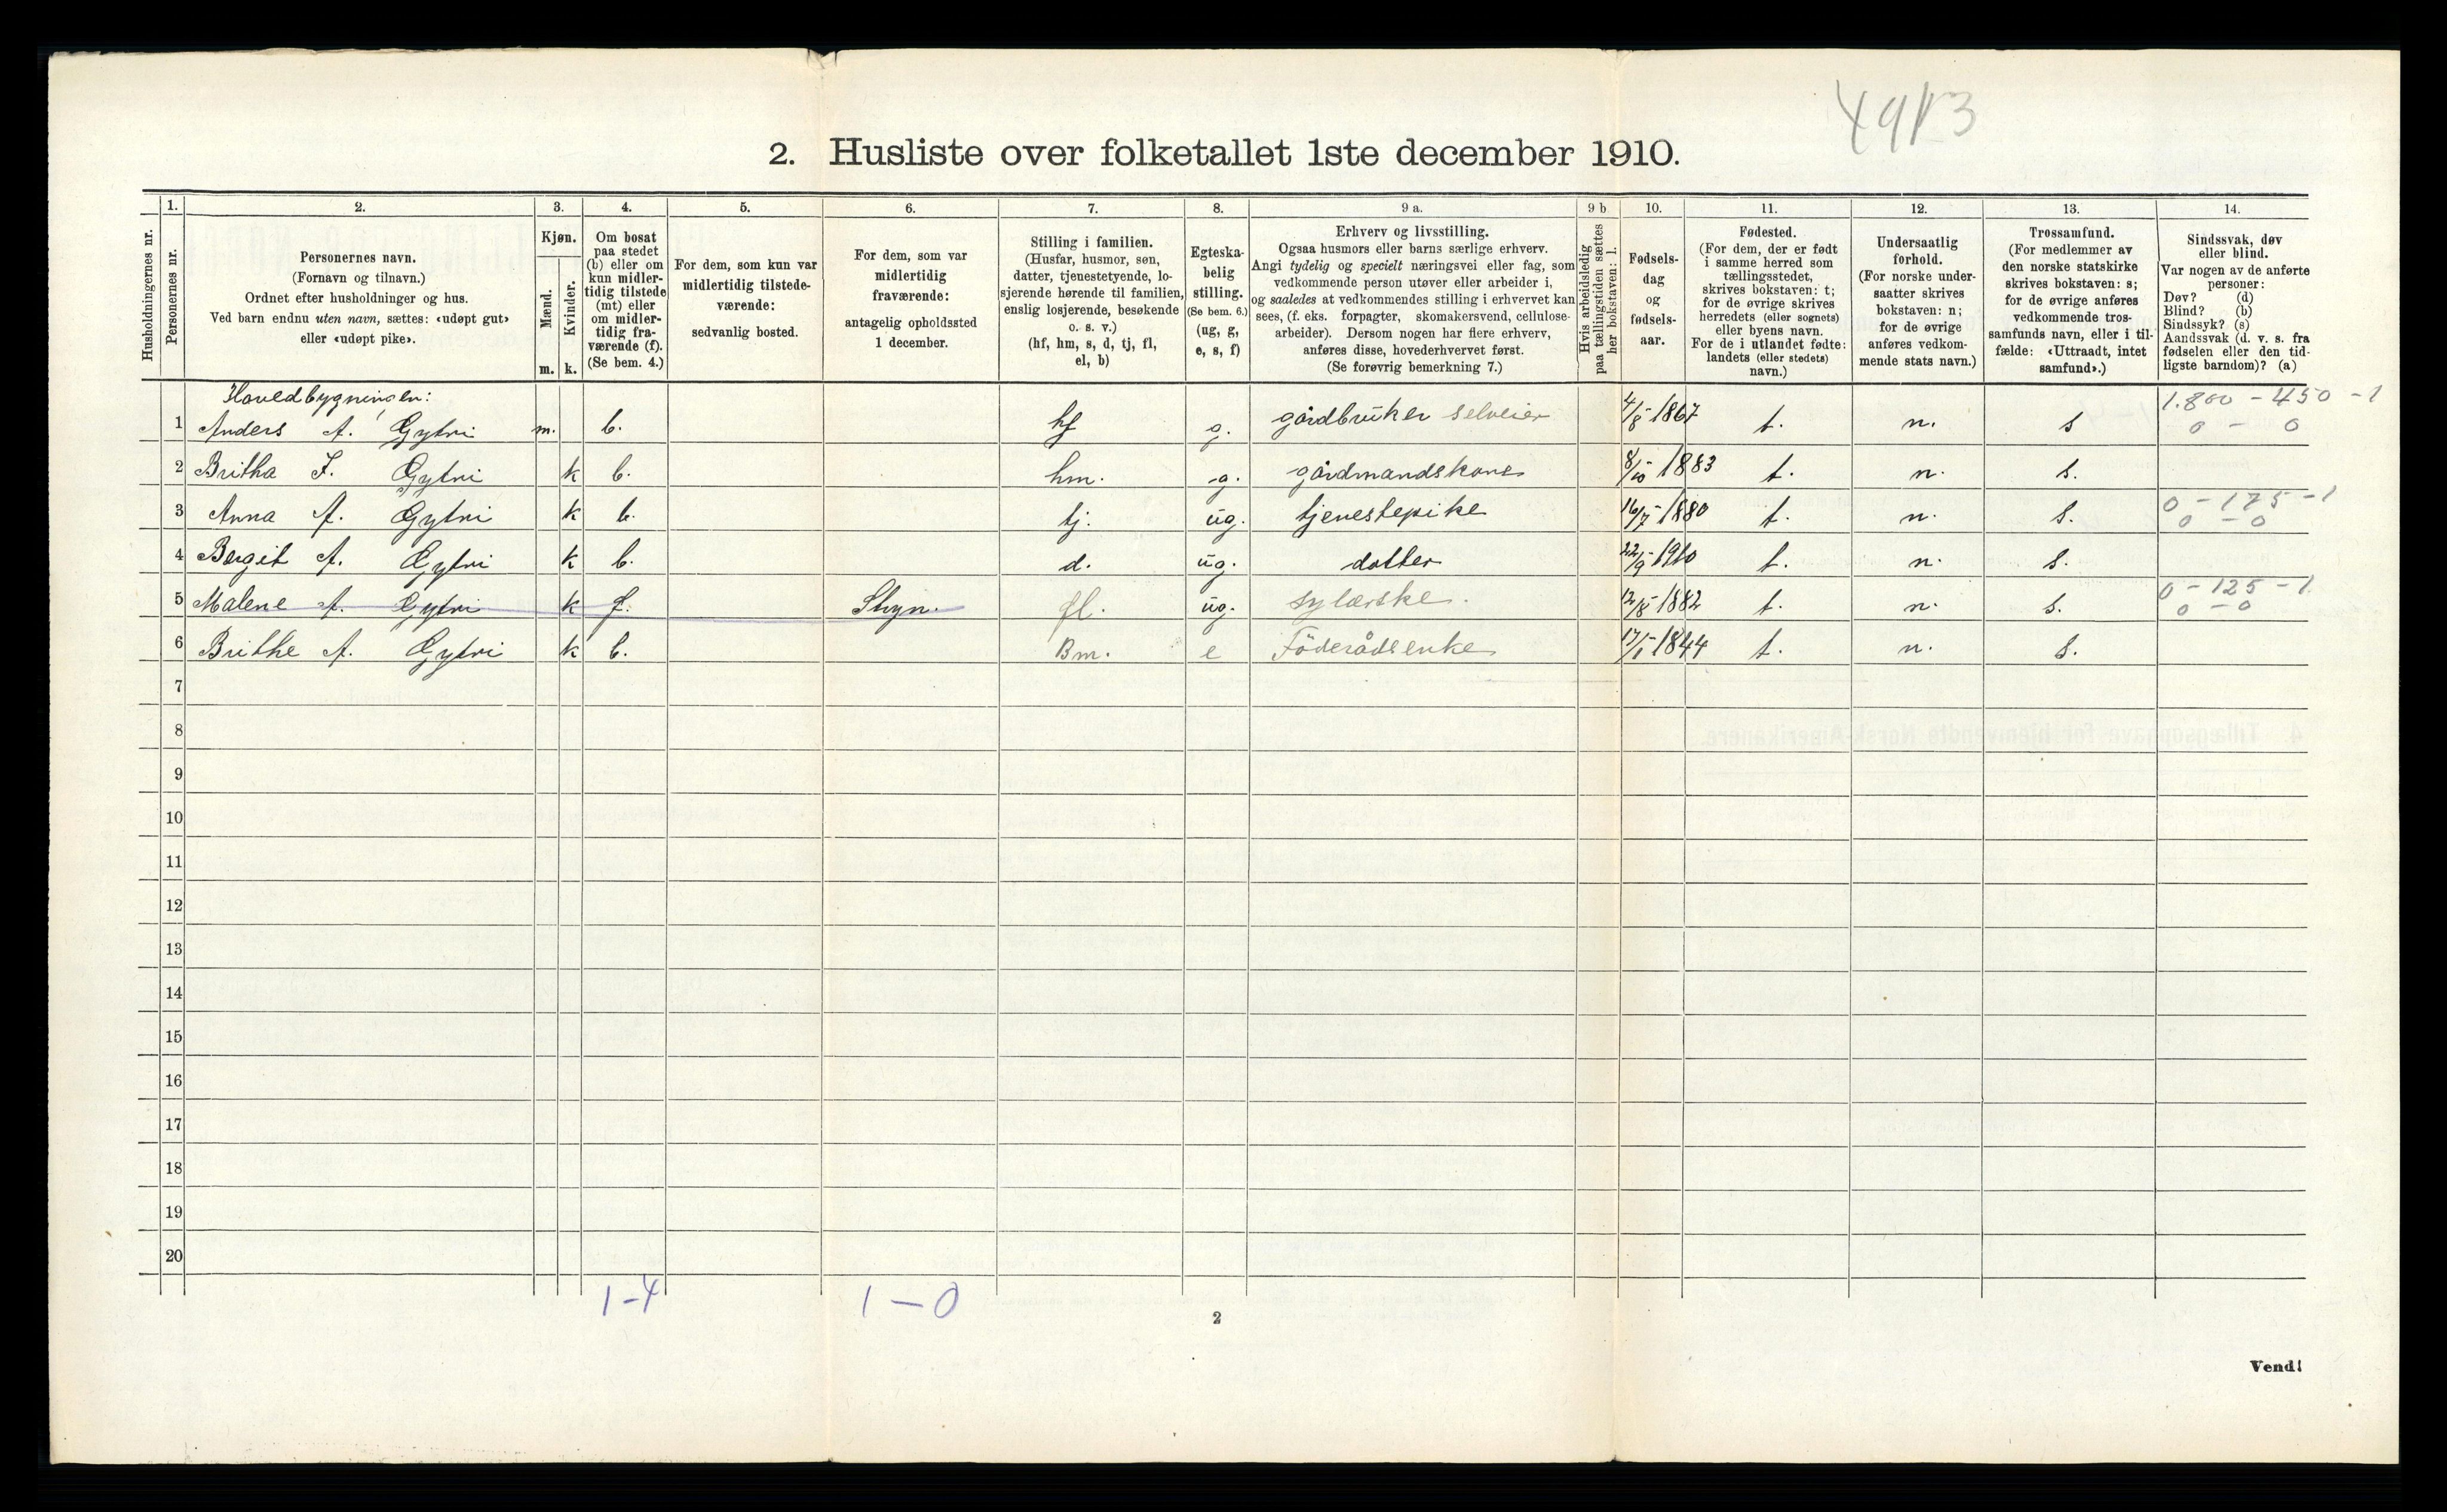 4913
2. Husliste over folketallet 1ste december 1910.
1. 2. 3. 4. 5. 6. 7. 8. 9 a. 9 b 10. 11. 12. 13. 14.
Husholdningernes nr.
Personernes nr.
Personernes navn.
(Fornavn og tilnavn.)
Ordnet efter husholdninger og hus.
Ved barn endnu uten navn, sættes: «udøpt gut»
eller «udøpt pike».
Kjøn.
Mænd.
Kvinder.
m. k.
Om bosat
paa stedet
(b) eller om
kun midler-
tidig tilstede
(mt) eller
om midler-
tidig fra-
værende (f).
(Se bem. 4.)
For dem, som kun var
midlertidig tilstede-
værende:
sedvanlig bosted.
For dem, som var
midlertidig
fraværende:
antagelig opholdssted
1 december.
Stilling i familien.
(Husfar, husmor, søn,
datter, tjenestetyende, lo-
sjerende hørende til familien,
enslig losjerende, besøkende
o. s. v.)
(hf, hm, s, d, tj, fl,
el, b)
Egteska-
belig
stilling.
(Se bem. 6.)
(ug, g,
e, s, f)
Erhverv og livsstilling.
Ogsaa husmors eller barns særlige erhverv.
Angi tydelig og specielt næringsvei eller fag, som
vedkommende person utøver eller arbeider i,
og saaledes at vedkommendes stilling i erhvervet kan
sees, (f. eks. forpagter, skomakersvend, cellulose-
arbeider). Dersom nogen har flere erhverv,
anføres disse, hovederhvervet først.
(Se forøvrig bemerkning 7.)
Hvis arbeidsledig
paa tællingstiden sættes
her bokstaven: l.
Fødsels-
dag
og
fødsels-
aar.
Fødested.
(For dem, der er født
i samme herred som
tællingsstedet,
skrives bokstaven: t;
for de øvrige skrives
herredets (eller sognets)
eller byens navn.
For de i utlandet fødte:
landets (eller stedets)
navn.)
Undersaatlig
forhold.
(For norske under-
saatter skrives
bokstaven: n;
for de øvrige
anføres vedkom-
mende stats navn.)
Trossamfund.
(For medlemmer av
den norske statskirke
skrives bokstaven: s;
for de øvrige anføres
vedkommende tros-
samfunds navn, eller i til-
fælde: «Uttraadt, intet
samfund».)
Sindssvak, døv
eller blind.
Var nogen av de anførte
personer:
Døv? (d)
Blind? (b)
Sindssyk? (s)
Aandssvak (d. v. s. fra
fødselen eller den tid-
ligste barndom)? (a)
Hovedbygningen: 1.800 - 450 - 1
1 Anders A. Gytri m. b. hf g. gårdbruker selveier 4/8 1867 t. n. s 0 - 0
2 Britha J. Gytri k b. hm. g. gårdmandskone 8/10 1883 t. n. s.
0 - 175 - 1
3 Anna A. Gytri k b. tj. ug. tjenestepike 16/7 1880 t. n. s. 0 - 0
4 Bergit A. Gytri k b. d. ug. datter 22/9 1910 t. n. s.
0 - 125 - 1
5 Malene A. Gytri k f. Stryn. fl. ug. sylærske. 12/8 1882 t. n. s. 0 - 0
6 Brithe A. Gytri k b. Bm. e Föderådsenke 17/1 1844 t. n. s.
7
8
9
10
11
12
13
14
15
16
17
18
19
20
1-4 1-0
2
Vend!